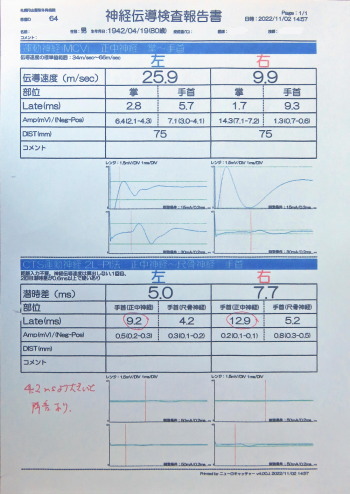 神経伝導検査報告書
Page : 1/1
64
性 : 男 生年月日 : 1942/04/19(80歳)
日時 : 2022/11/02 14:57
コメント :
運動神経MCV 正中神経 掌～手首
左 右
伝導速度 (m/sec) 25.9 9.9
部位 掌 手首 掌 手首
Late(ms) 2.8 5.7 1.7 9.3
Amp(mV)/(Neg-Pos) 6.4(2.1-4.3) 7.1(3.0-4.1) 14.3(7.1-7.2) 1.3(0.7-0.6)
DIST(mm) 75 75
コメント
左 右
潜時差 (ms) 5.0 7.7
部位 手首(正中神経) 手首(尺骨神経) 手首(正中神経) 手首(尺骨神経)
Late(ms) 9.2 4.2 12.9 5.2
Amp(mV)/(Neg-Pos) 0.5(0.2-0.3) 0.3(0.1-0.2) 0.2(0.1-0.1) 0.8(0.3-0.5)
DIST(mm)
コメント
4.2 msより大きいと
障害あり.